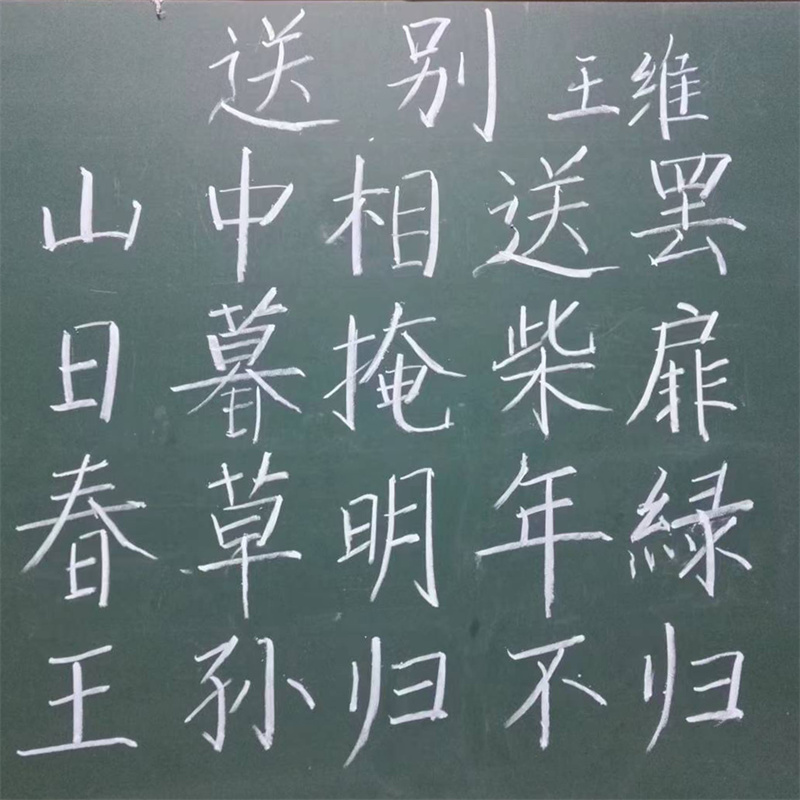 送别 王维
山中相送罢
日暮掩柴扉
春草明年緑
王孙归不归